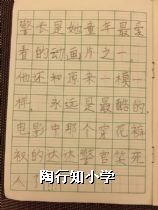 警长是她童年最爱
看的动画片之一。
他还和原来一模一
样。永远是最酷的。
电影中那个穿花裤
衩的伏伏警官笑死
人
陶行知小学